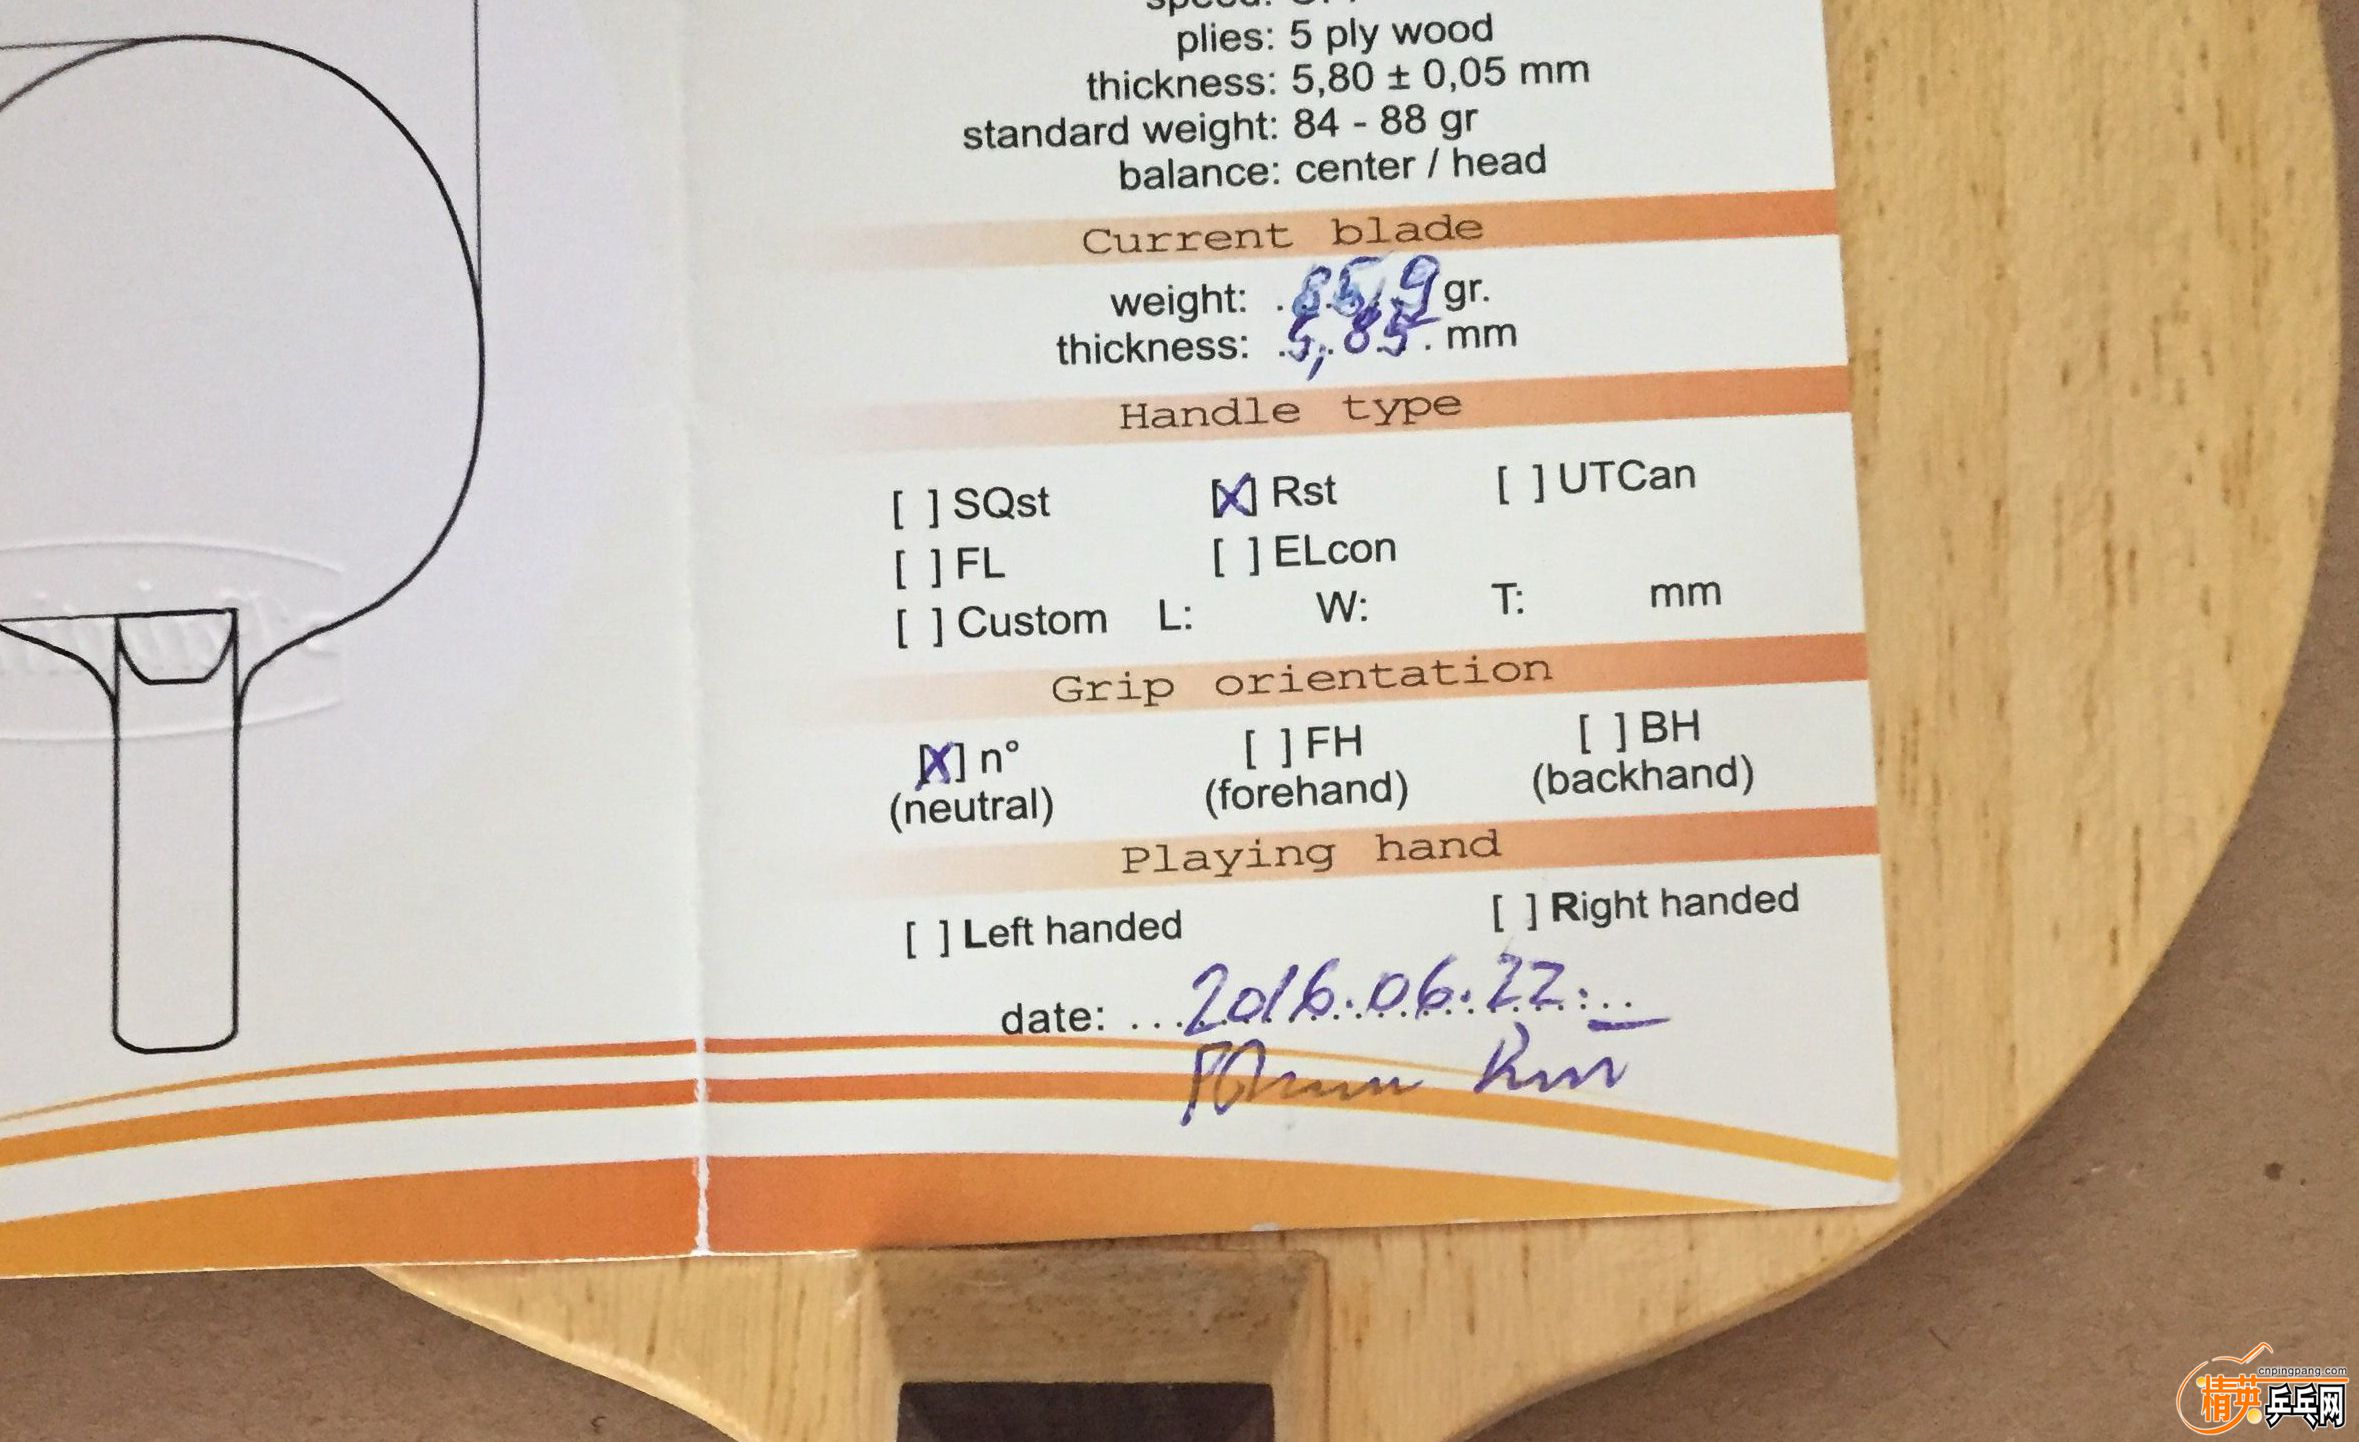 speed:
plies: 5 ply wood
thickness: 5,80 ± 0,05 mm
standard weight: 84 - 88 gr
balance: center / head
Current blade
weight: 85,9 gr.
thickness: 5,85 mm
Handle type
[ ] SQst [X] Rst [ ] UTCan
[ ] FL [ ] ELcon
[ ] Custom L: W: T: mm
Grip orientation
[X] n° [ ] FH [ ] BH
(neutral) (forehand) (backhand)
Playing hand
[ ] Left handed [ ] Right handed
date: ...2016.06.22...
cnpingpang.com
精英乒乓网